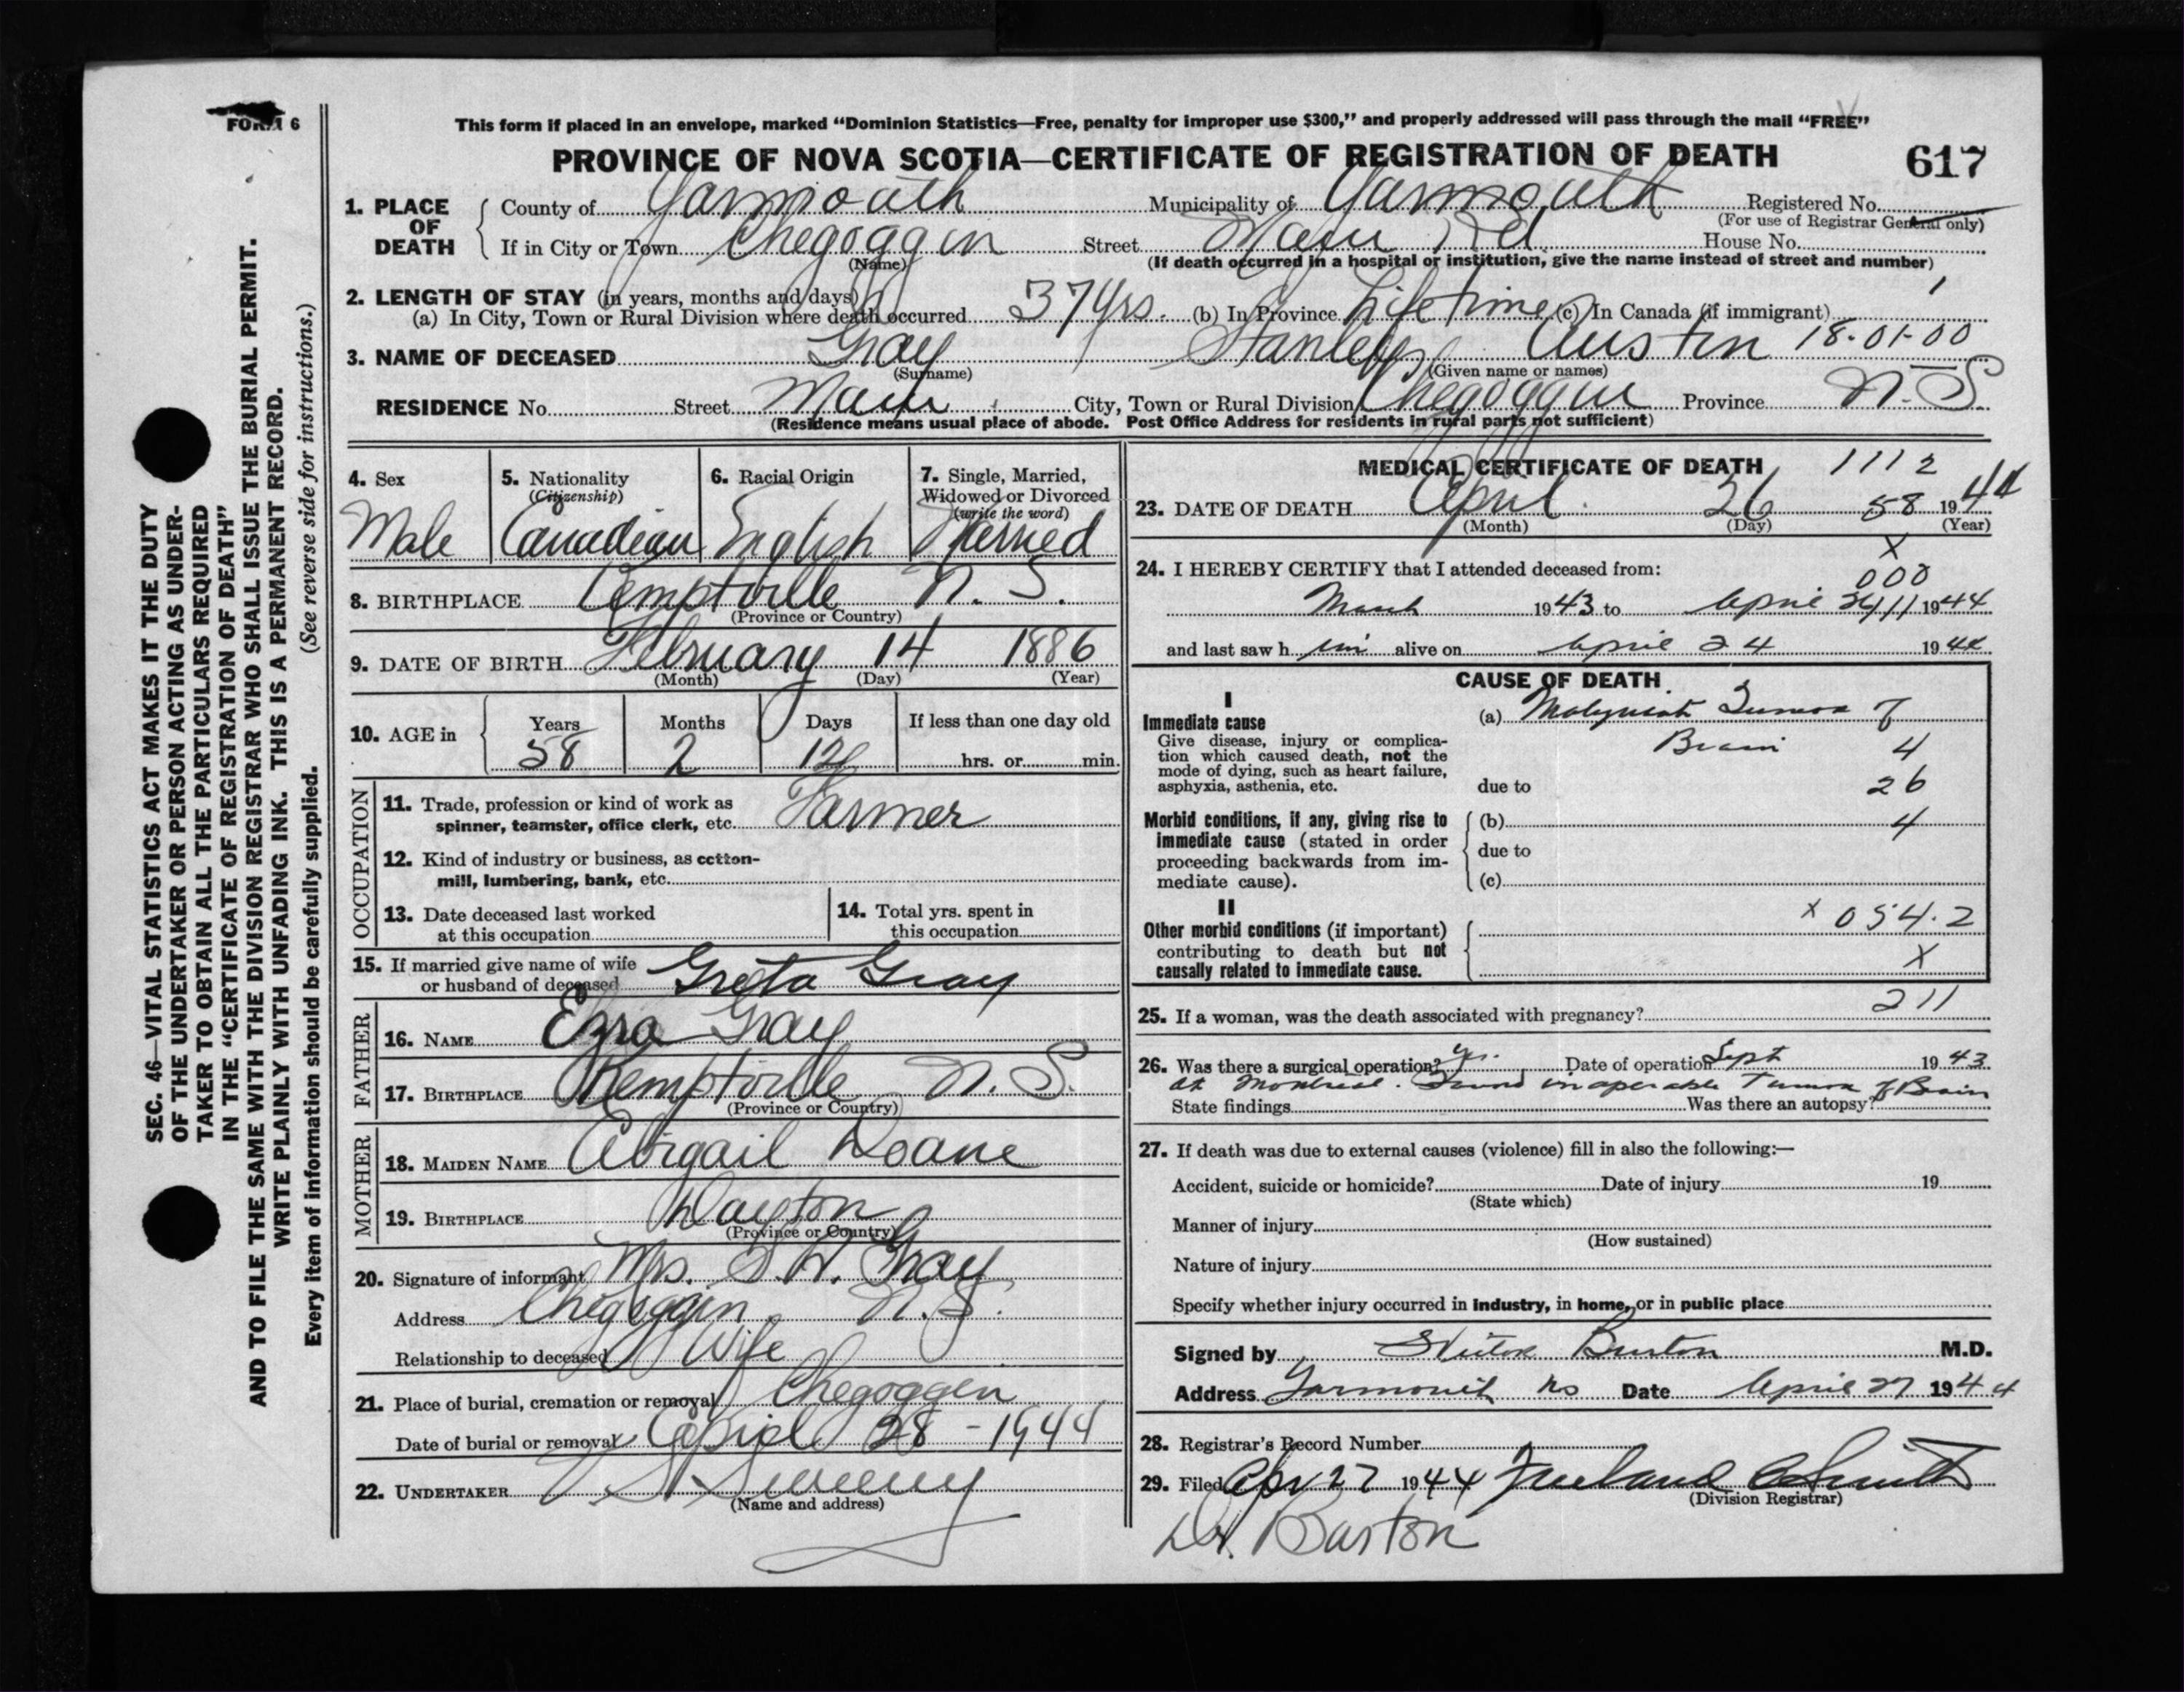 FORM 6
This form if placed in an envelope, marked “Dominion Statistics—Free, penalty for improper use $300,” and properly addressed will pass through the mail “FREE”
PROVINCE OF NOVA SCOTIA—CERTIFICATE OF REGISTRATION OF DEATH 617
SEC. 46—VITAL STATISTICS ACT MAKES IT THE DUTY
OF THE UNDERTAKER OR PERSON ACTING AS UNDER-
TAKER TO OBTAIN ALL THE PARTICULARS REQUIRED
IN THE “CERTIFICATE OF REGISTRATION OF DEATH”
AND TO FILE THE SAME WITH THE DIVISION REGISTRAR WHO SHALL ISSUE THE BURIAL PERMIT.
WRITE PLAINLY WITH UNFADING INK. THIS IS A PERMANENT RECORD.
Every item of information should be carefully supplied. (See reverse side for instructions.)
1. PLACE OF DEATH County of Yarmouth Municipality of Yarmouth Registered No.
(For use of Registrar General only)
If in City or Town Chegoggin Street Main Rd. House No.
(Name) (If death occurred in a hospital or institution, give the name instead of street and number)
2. LENGTH OF STAY (in years, months and days)
(a) In City, Town or Rural Division where death occurred 37 yrs. (b) In Province Lifetime (c) In Canada (if immigrant)
3. NAME OF DECEASED Gray Stanley Austin 18-01-00
(Surname) (Given name or names)
RESIDENCE No. Street Main City, Town or Rural Division Chegoggin Province N.S.
(Residence means usual place of abode. Post Office Address for residents in rural parts not sufficient)
4. Sex
Male
5. Nationality
(Citizenship)
Canadian
6. Racial Origin
English
7. Single, Married,
Widowed or Divorced
(write the word)
Married
8. BIRTHPLACE Kemptville N. S.
(Province or Country)
9. DATE OF BIRTH February 14 1886
(Month) (Day) (Year)
10. AGE in Years Months Days If less than one day old
58 2 12 hrs. or min.
OCCUPATION
11. Trade, profession or kind of work as
spinner, teamster, office clerk, etc. Farmer
12. Kind of industry or business, as cotton-
mill, lumbering, bank, etc.
13. Date deceased last worked
at this occupation
14. Total yrs. spent in
this occupation
15. If married give name of wife
or husband of deceased Greta Gray
FATHER
16. NAME Ezra Gray
17. BIRTHPLACE Kemptville N. S.
(Province or Country)
MOTHER
18. MAIDEN NAME Abigail Doane
19. BIRTHPLACE Dayton
(Province or Country)
20. Signature of informant Mrs. S. A. Gray
Address Chegoggin, N.S.
Relationship to deceased Wife
21. Place of burial, cremation or removal Chegoggen
Date of burial or removal April 28 - 1944
22. UNDERTAKER V. S. Sweeny
(Name and address)
MEDICAL CERTIFICATE OF DEATH 1112
23. DATE OF DEATH April 26 58 1944
(Month) (Day) (Year)
X
24. I HEREBY CERTIFY that I attended deceased from:
000
March 1943 to April 1944
and last saw him alive on April 24 1944
CAUSE OF DEATH
I
Immediate cause
Give disease, injury or complica-
tion which caused death, not the
mode of dying, such as heart failure,
asphyxia, asthenia, etc.
(a) Malignant Tumor of
Brain 4
due to 26
Morbid conditions, if any, giving rise to
immediate cause (stated in order
proceeding backwards from im-
mediate cause).
(b) 4
due to
(c)
II
Other morbid conditions (if important)
contributing to death but not
causally related to immediate cause.
X 054.2
X
25. If a woman, was the death associated with pregnancy? 211
26. Was there a surgical operation? yes. Date of operation Sept 1943
at Montreal. Found inoperable Tumor of Brain
State findings Was there an autopsy?
27. If death was due to external causes (violence) fill in also the following:—
Accident, suicide or homicide? Date of injury 19
(State which)
Manner of injury
(How sustained)
Nature of injury
Specify whether injury occurred in industry, in home, or in public place
Signed by Burton M.D.
Address Yarmouth NS Date April 27 1944
28. Registrar's Record Number
29. Filed Apr 27 1944 Freeland C Smith
(Division Registrar)
Dr. Burton